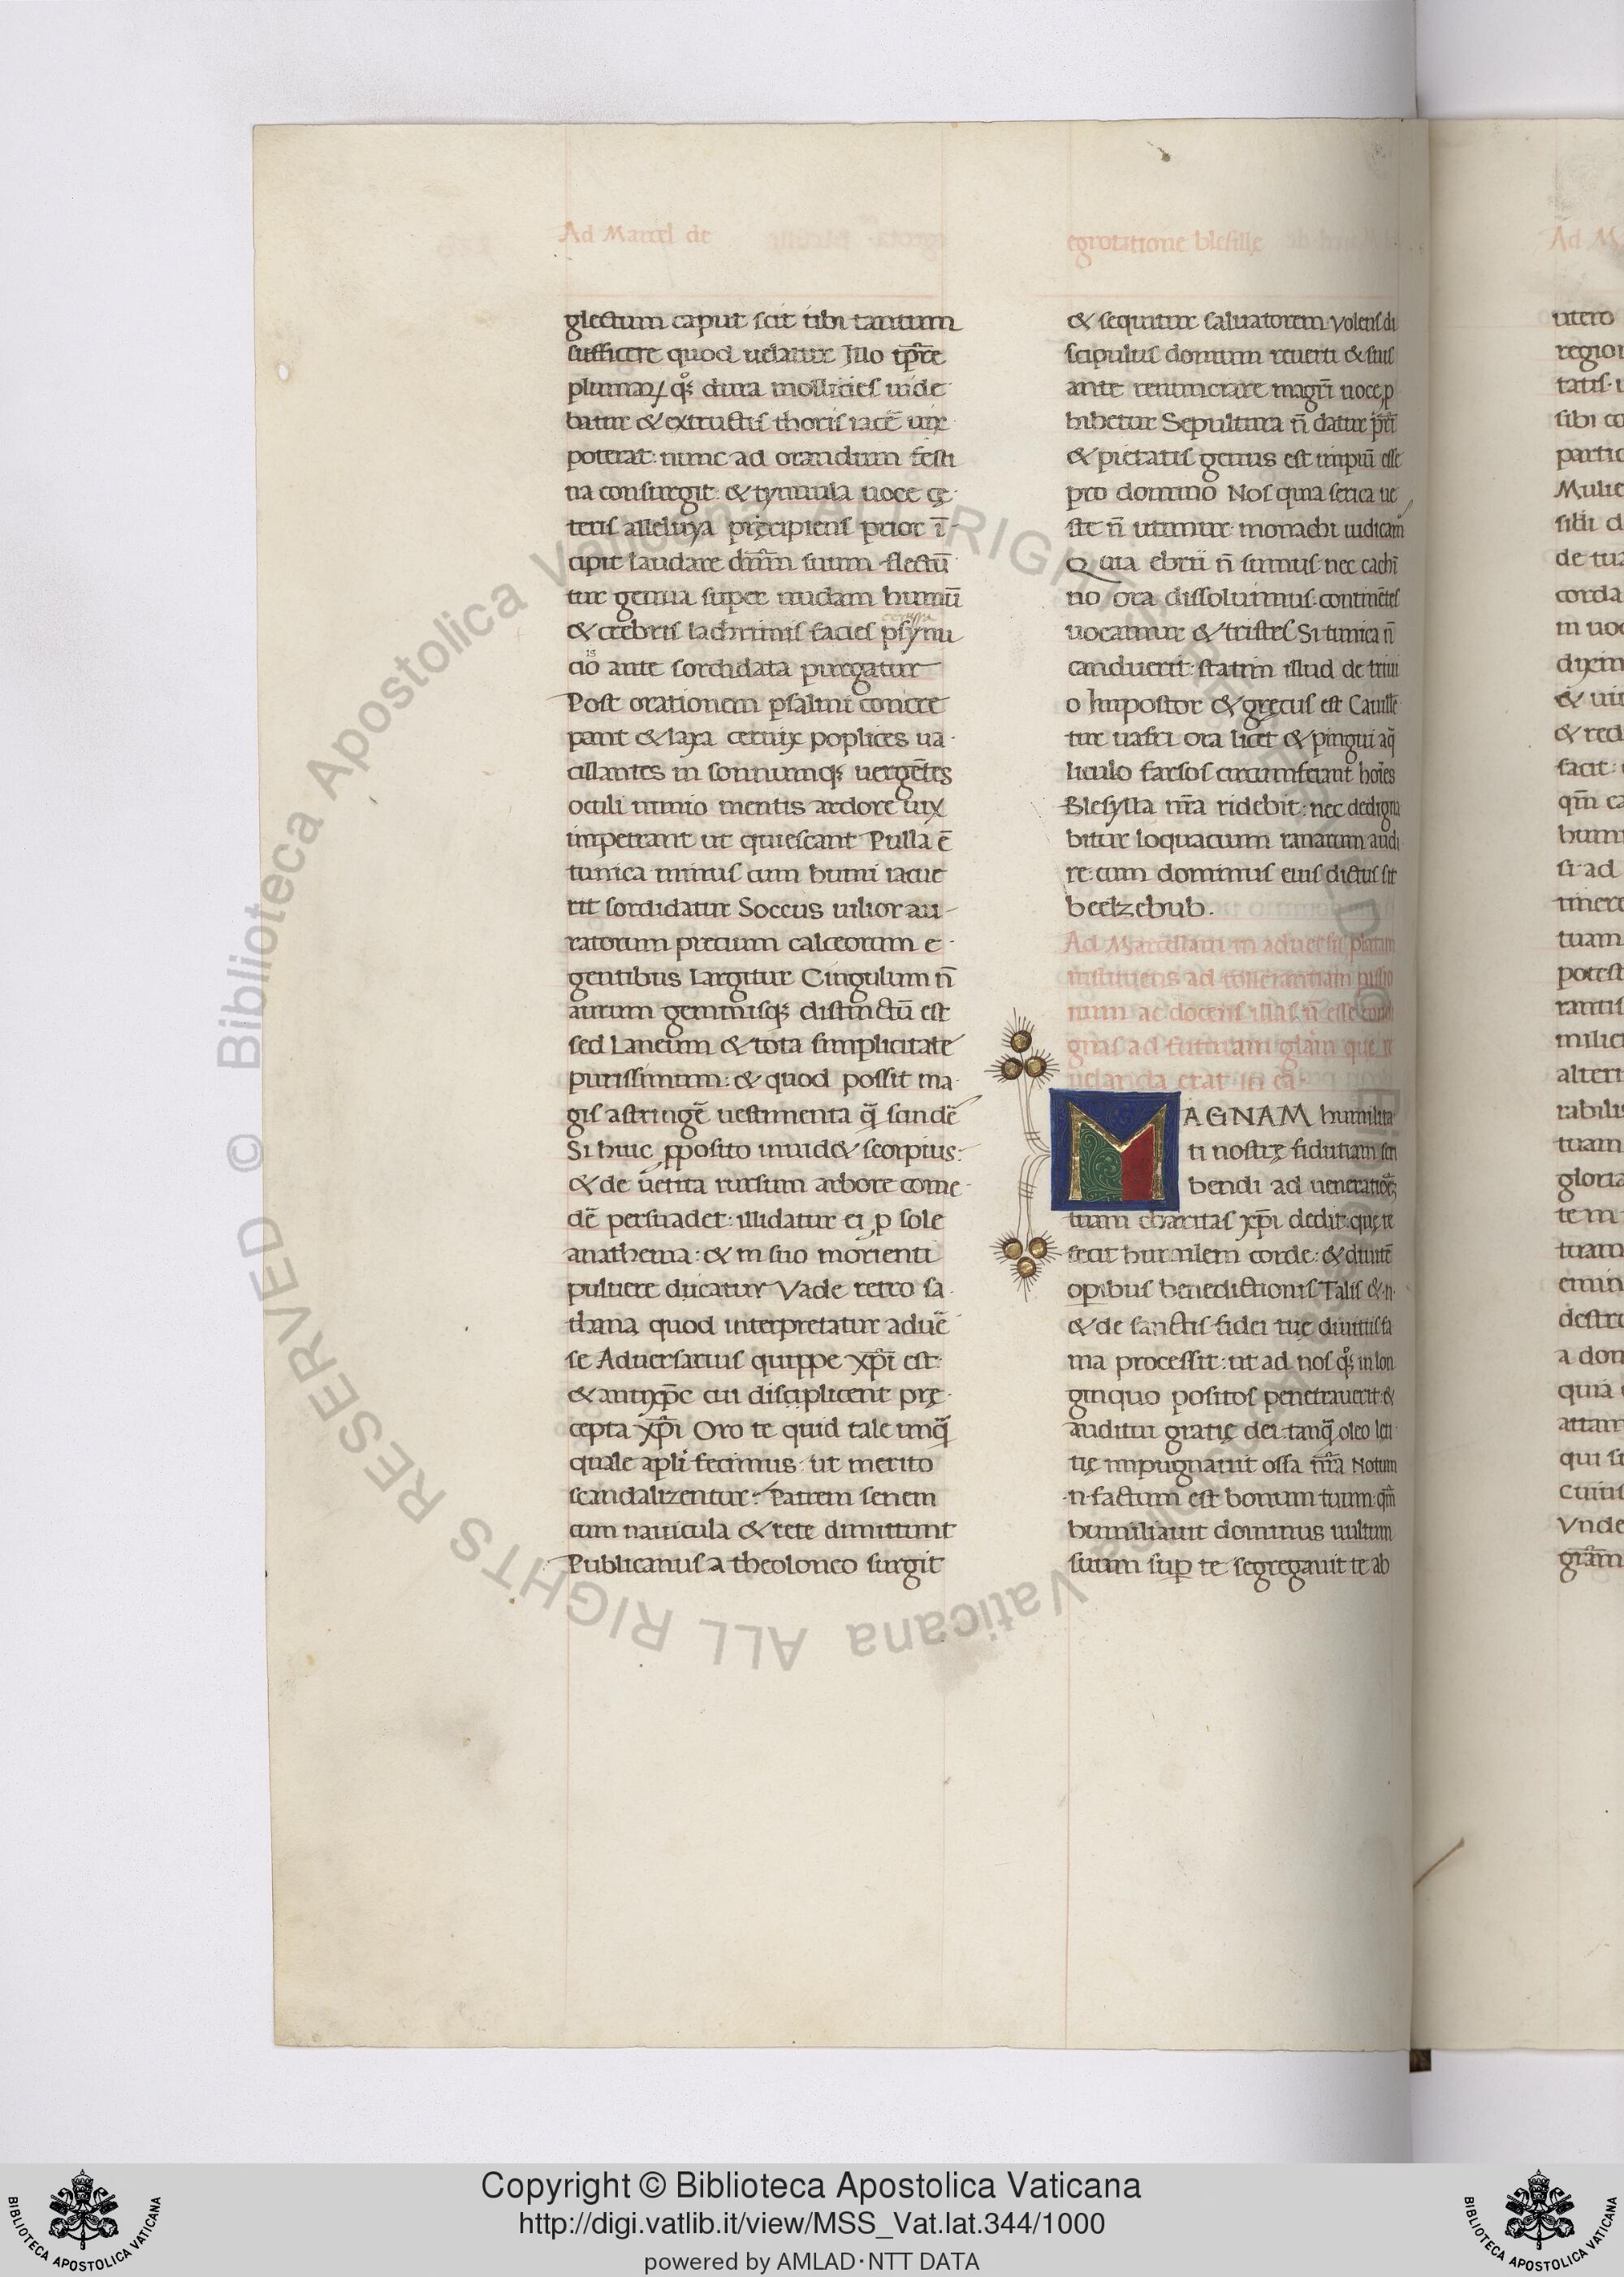 Ad Marcel de
glectum caput scit tibi tantum
sufficere quod uelatur Illo tp̄re
plumaꝝ qͦꝫ dura mollicies uide
batur & extructis thoris iacē uix
poterat: nunc ad orandum festi
na consurgit: & tynnula uoce cę
teris alleluya pręcipiens prior ī
cipit laudare dn̄m suum flectū
tur genua super nudam humū
& crebris lachrimis facies psymi
cio ante sordidata purgatur
Post orationem psalmi concre
pant & laxa ceruix poplices ua
cillantes in somnumqꝫ uergētes
oculi nimio mentis ardore uix
impetrant ut quiescant Pulla ē
tunica minus cum humi iacue
rit sordidatur Soccus uilior au
ratorum precium calceorum e
gentibus Largitur Cingulum n̄
aurum gemmisqꝫ distinctū est
sed Laneum & tota simplicitate
purissimum: & quod possit ma
gis astringē uestimenta q̄ scindē
Si huic ꝓposito inuid& scorpius:
& de uetita rursum arbore come
dē persuadet: illidatur ei ꝓ sole
anathema: & in suo morienti
puluere dicatur Vade retro sa
thana quod interpretatur aduē
se Aduersarius quippe xp̄i est
& antixp̄c cui disciplicent prę
cepta xp̄i Oro te quid tale unq̄
quale apl̄i fecimus: ut merito
scandalizentur: Patrem senem
cum nauicula & rete dimittunt
Publicanus a theoloneo surgit
egrotatione blesillę
& sequitur saluatorem: volens di
scipulus domum reuerti & suis
ante renunciare magr̄i uoce ꝓ
hibetur Sepultura n̄ datur pr̄i
& pietatis genus est impiū esse
pro domino Nos quia serica ue
ste n̄ utimur: monachi iudicam̄
Quia ebrii n̄ sumus: nec cachī
no ora dissoluimus: continētes
uocamur & tristes Si tunica n̄
canduerit: statim illud de triui
o Impostor & grecus est Cauillē
tur uafri ora licet & pingui aq̄
liculo farsos circumferant hoīes
Blesylla nr̄a ridebit: nec dedigna
bitur loquacium ranarum audi
re: cum dominus eius dictus sit
beelzebub.
Ad Marcellam in aduersis
instituens ad tollerantiam passio
num ac docens illas n̄ esse condi
gnas ad futuram gl̄am que re
uelanda erat in ea
MAGNAM humilita
ti nostrę fidutiam scri
bendi ad
tuam charitas xp̄i dedit: quę te
fecit humilem corde: & diuitē
opibus benedictionis Talis & n
& de sanctis fidei tuę diuitiis fa
ma processit: ut ad nos qͦꝫ in lon
ginquo positos penetrauerit: &
auditu gratię dei: tanq̄ oleo leti
tię impugnauit ossa nr̄a Notum
n factum est bonum tuum: qm̄
humiliauit dominus uultum
suum sup̄ te segregauit te ab
Ad M
utero
regio
tatis
sibi co
partic
Mulie
sibi d
de tua
corda
in uoc
dixin
& uir
& red
facit:
qm̄ ca
humi
si ad
timere
tuam
potest
rantis
milici
alteri
rabilis
tuam
gloria
te m
tuam
emin
destru
a dom
quia
attam
qui si
cuius
Vnde
gr̄am
Copyright © Biblioteca Apostolica Vaticana
http://digi.vatlib.it/view/MSS_Vat.lat.344/1000
powered by AMLAD·NTT DATA
BIBLIOTECA APOSTOLICA VATICANA
BIBLIOTECA APOSTOLICA VATICANA
© Biblioteca Apostolica Vaticana ALL RIGHTS RESERVED
© Biblioteca Apostolica Vaticana ALL RIGHTS RESERVED